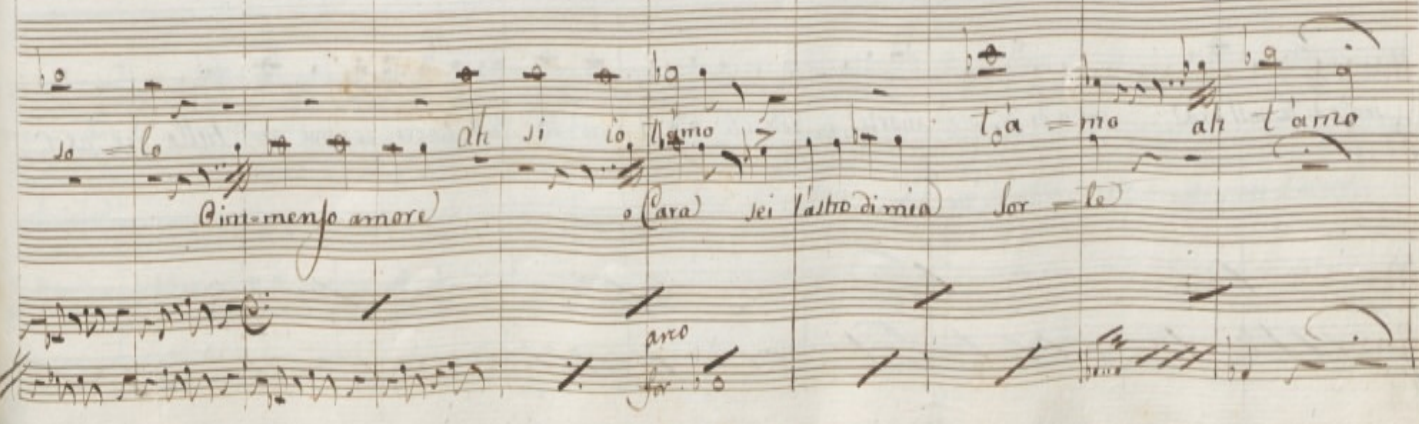 so = lo ah si io t'amo t'a = mo ah t'amo
D'im=menso amore o Cara sei l'astro di mia sor = te
arco
for.